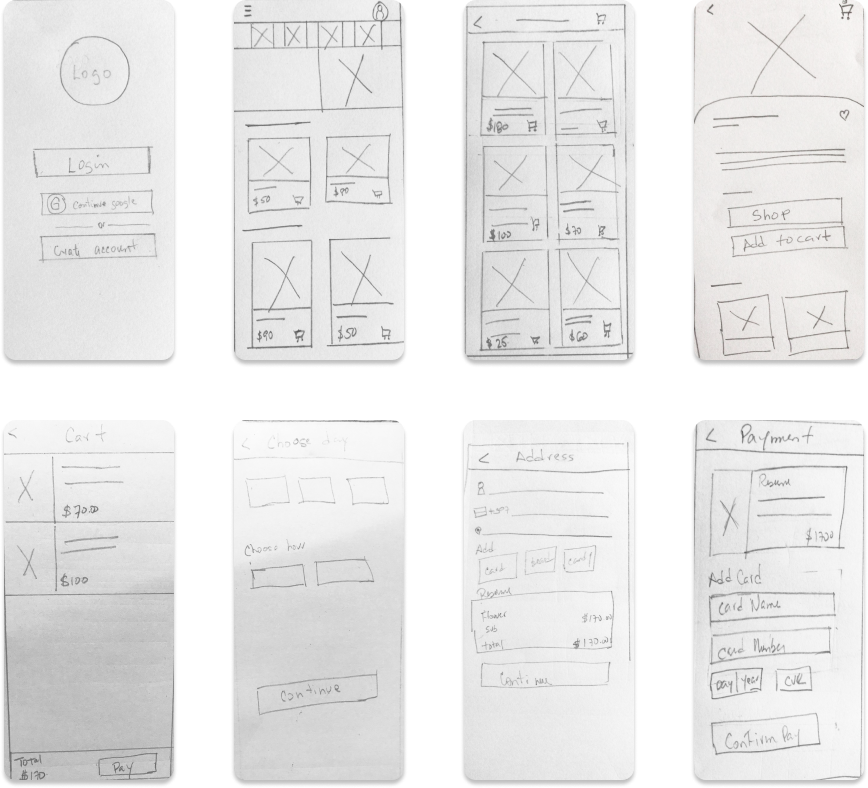 Logo
Login
G continue google
or
Create account
$50
$90
$90
$50
$180
$100
$70
$25
$60
Shop
Add to cart
Cart
$70.00
$100
Total
$170
Pay
Choose day
Continue
Address
Add
card
candy
Flower
$170.00
Sub
total
$170.00
Continue
Payment
$170.0
Add Card
Card Name
Card Number
Day
Year
Confirm Pay